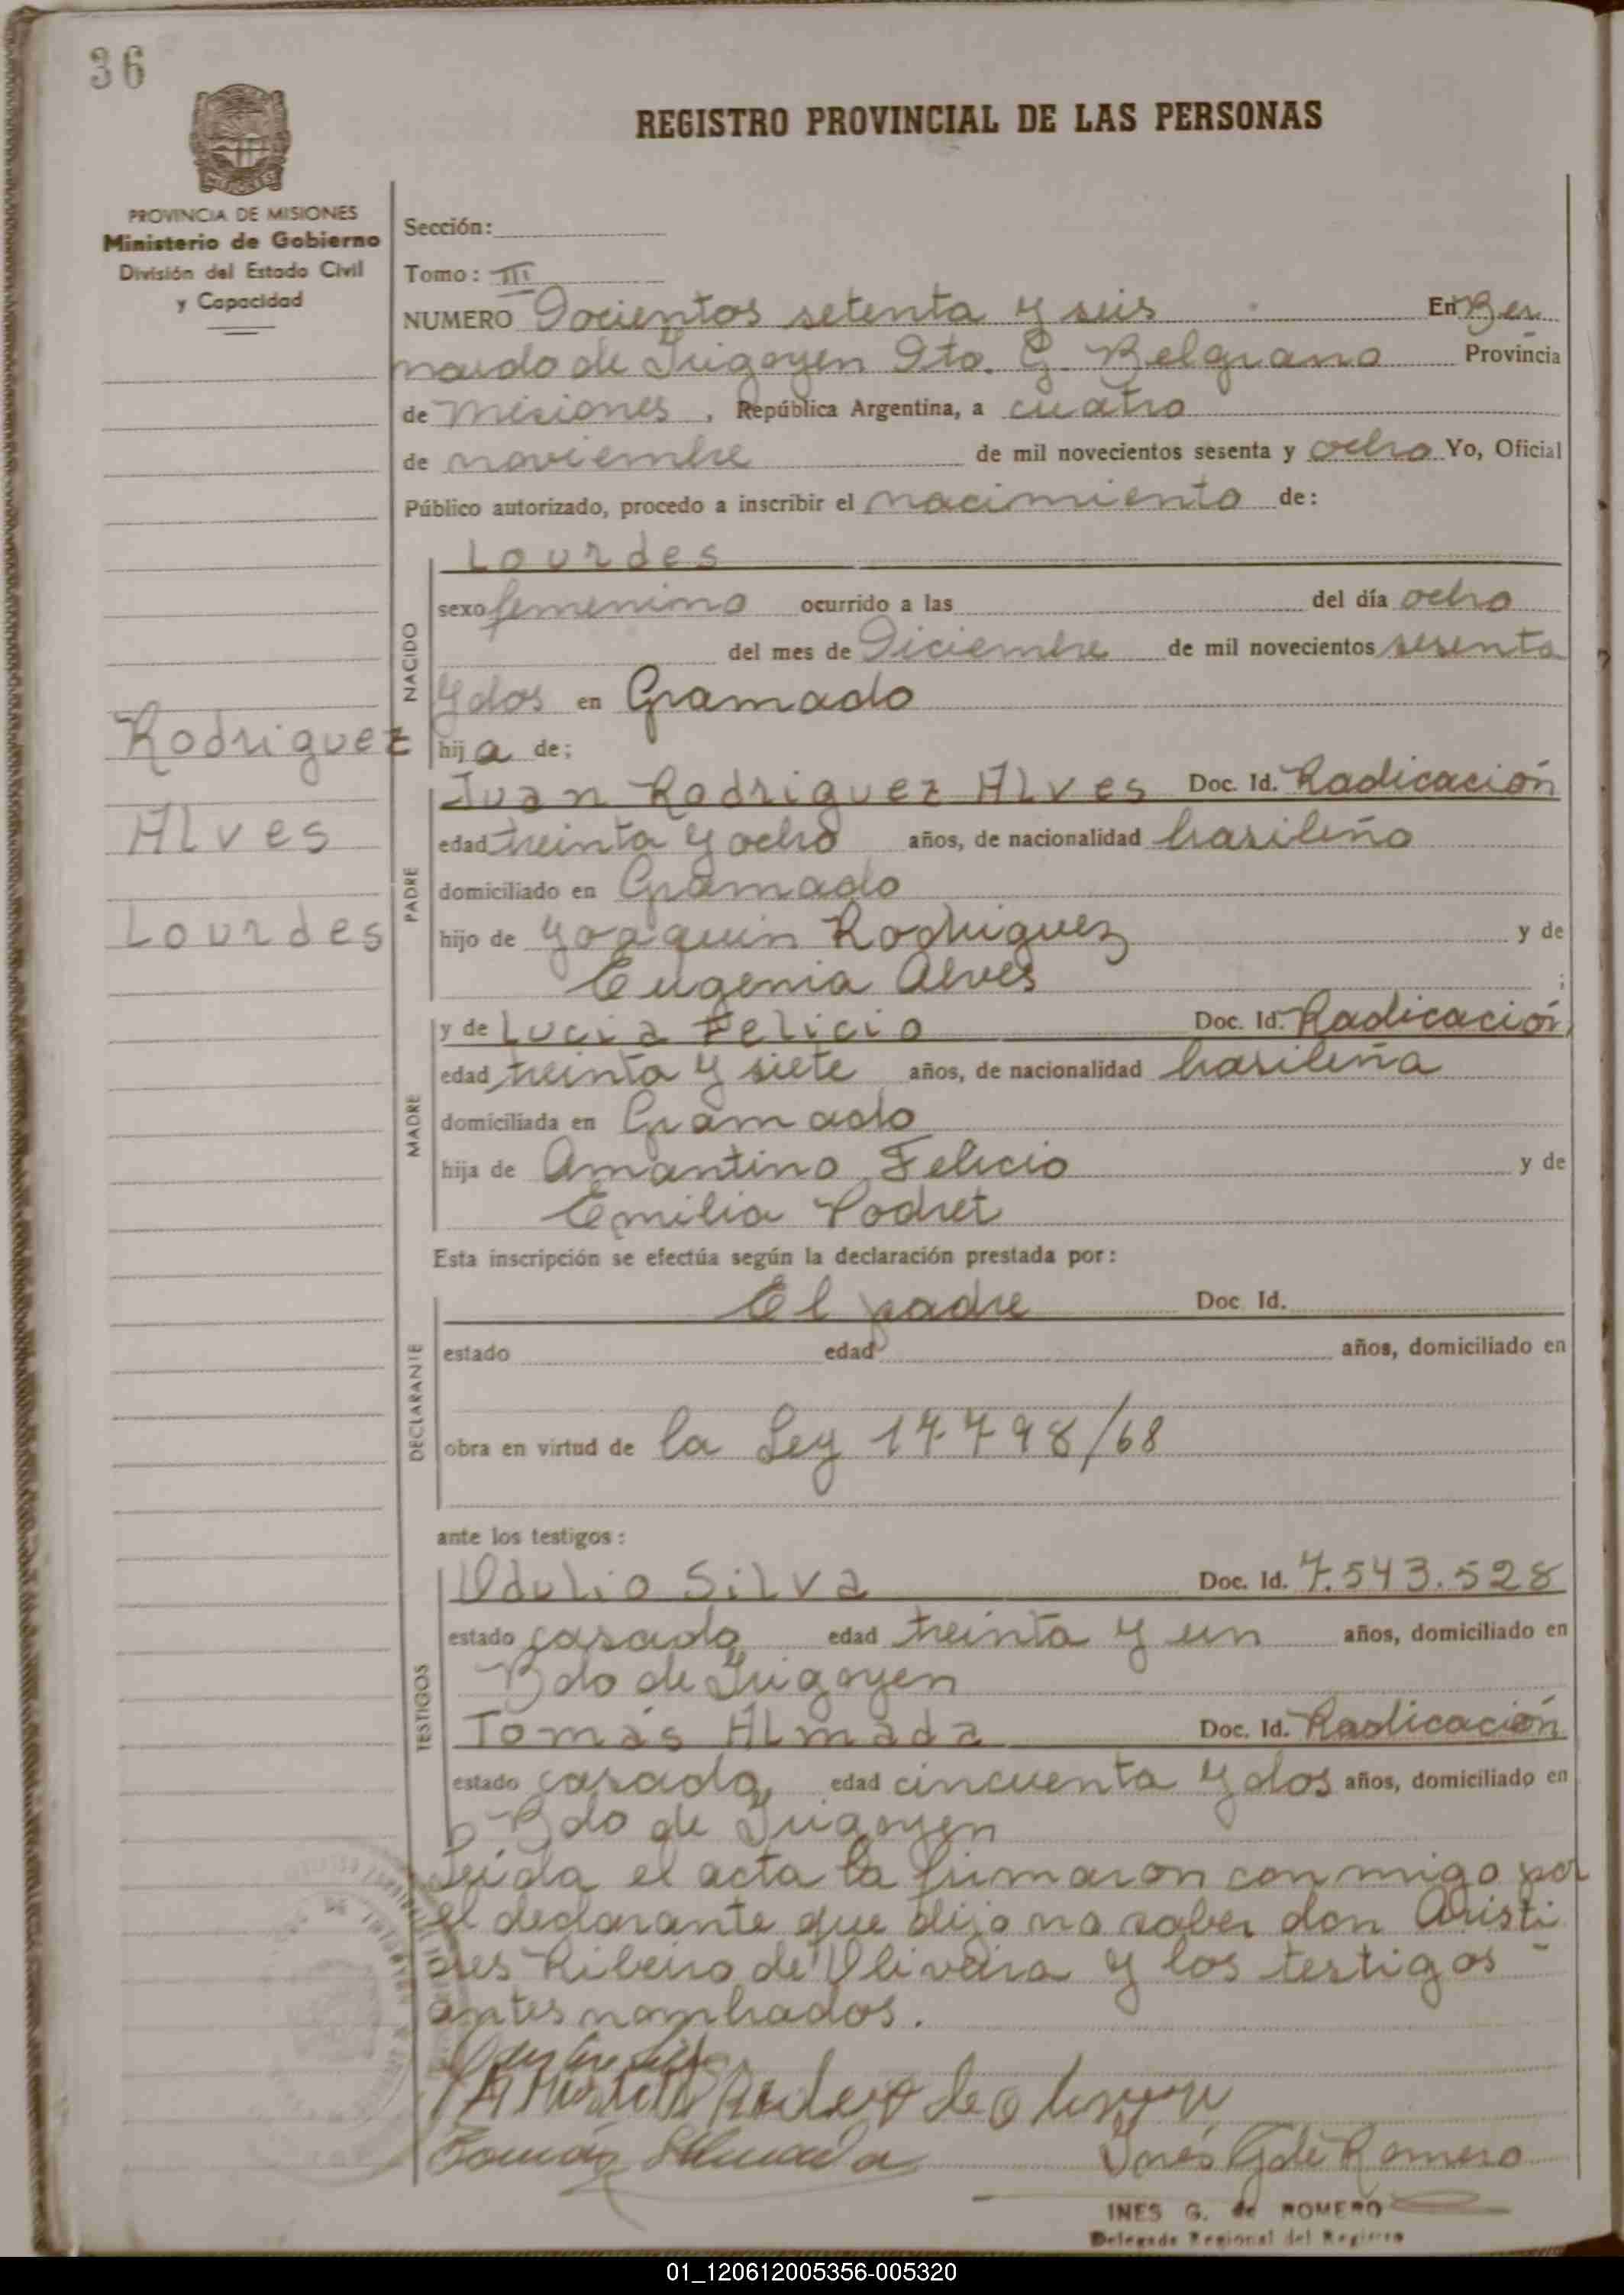 36
REGISTRO PROVINCIAL DE LAS PERSONAS
PROVINCIA DE MISIONES
Ministerio de Gobierno
División del Estado Civil
y Capacidad
Sección:
Tomo: III
NUMERO Docientos setenta y seis En Ber
nardo de Irigoyen Dto. G. Belgrano Provincia
de Misiones, República Argentina, a cuatro
de noviembre de mil novecientos sesenta y ocho Yo, Oficial
Público autorizado, procedo a inscribir el nacimiento de:
Lourdes
NACIDO
sexo femenino ocurrido a las del día ocho
del mes de Diciembre de mil novecientos sesenta
y dos en Gramado
Rodriguez
Alves
Lourdes
hija de:
PADRE
Juan Rodriguez Alves Doc. Id. Radicación
edad treinta y ocho años, de nacionalidad brasileño
domiciliado en Gramado
hijo de Joaquin Rodriguez y de
Eugenia Alves;
MADRE
y de Lucia Felicio Doc. Id. Radicación
edad treinta y siete años, de nacionalidad brasileña
domiciliada en Gramado
hija de Amantino Felicio y de
Emilia Podret
Esta inscripción se efectúa según la declaración prestada por:
DECLARANTE
El padre Doc. Id.
estado edad años, domiciliado en
obra en virtud de la Ley 17798/68
ante los testigos:
TESTIGOS
Odulio Silva Doc. Id. 7.543.528
estado casado edad treinta y un años, domiciliado en
Bdo de Irigoyen
Tomás Almada Doc. Id. Radicación
estado casado, edad cincuenta y dos años, domiciliado en
Bdo de Irigoyen
Leída el acta la firmaron conmigo por
el declarante que dijo no saber don Aristi
des Ribeiro de Oliveira y los testigos
antes nombrados.
Tomás Almada
Inés G de Romero
INES G. de ROMERO
Delegada Regional del Registro
01_120612005356-005320